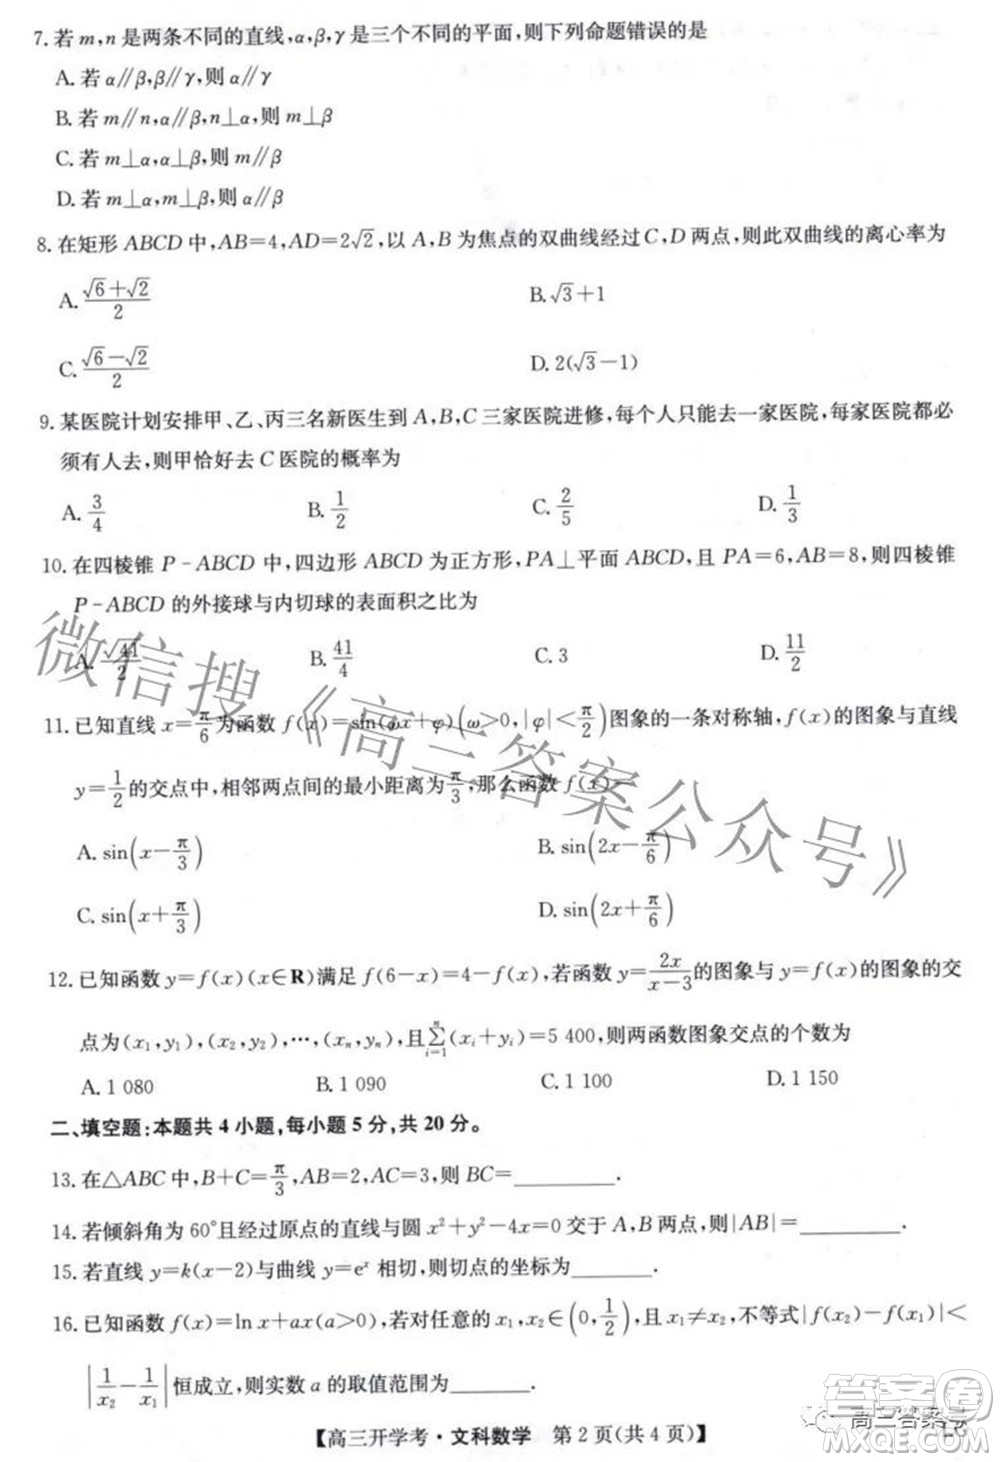 7. 若 m,n 是两条不同的直线,α,β,γ 是三个不同的平面,则下列命题错误的是
A. 若 α∥β,β∥γ,则 α∥γ
B. 若 m∥n,α∥β,n⊥α,则 m⊥β
C. 若 m⊥α,α⊥β,则 m∥β
D. 若 m⊥α,m⊥β,则 α∥β
8. 在矩形 ABCD 中,AB=4,AD=2√2,以 A,B 为焦点的双曲线经过 C,D 两点,则此双曲线的离心率为
A. (√6+√2)/2 B. √3+1
C. (√6-√2)/2 D. 2(√3-1)
9. 某医院计划安排甲、乙、丙三名新医生到 A,B,C 三家医院进修,每个人只能去一家医院,每家医院都必
须有人去,则甲恰好去 C 医院的概率为
A. 3/4 B. 1/2 C. 2/5 D. 1/3
10. 在四棱锥 P-ABCD 中,四边形 ABCD 为正方形,PA⊥平面 ABCD,且 PA=6,AB=8,则四棱锥
P-ABCD 的外接球与内切球的表面积之比为
A. √41/2 B. 41/4 C. 3 D. 11/2
11. 已知直线 x=π/6 为函数 f(x)=sin(ωx+φ)(ω>0,|φ|<π/2)图象的一条对称轴,f(x)的图象与直线
y=1/2 的交点中,相邻两点间的最小距离为 π/3,那么函数 f(x)=
A. sin(x-π/3) B. sin(2x-π/6)
C. sin(x+π/3) D. sin(2x+π/6)
12. 已知函数 y=f(x)(x∈R)满足 f(6-x)=4-f(x),若函数 y=2x/(x-3) 的图象与 y=f(x)的图象的交
点为(x₁,y₁),(x₂,y₂),…,(xₙ,yₙ),且∑ⁿᵢ₌₁(xᵢ+yᵢ)=5 400,则两函数图象交点的个数为
A. 1 080 B. 1 090 C. 1 100 D. 1 150
二、填空题:本题共 4 小题,每小题 5 分,共 20 分。
13. 在△ABC 中,B+C=π/3,AB=2,AC=3,则 BC=________.
14. 若倾斜角为 60°且经过原点的直线与圆 x²+y²-4x=0 交于 A,B 两点,则|AB|=________.
15. 若直线 y=k(x-2)与曲线 y=eˣ 相切,则切点的坐标为________.
16. 已知函数 f(x)=ln x+ax(a>0),若对任意的 x₁,x₂∈(0,1/2),且 x₁≠x₂,不等式|f(x₂)-f(x₁)|<
|1/x₂-1/x₁|恒成立,则实数 a 的取值范围为________.
【高三开学考·文科数学 第 2 页(共 4 页)】
微信搜《高三答案公众号》
答案圈
高三答案号